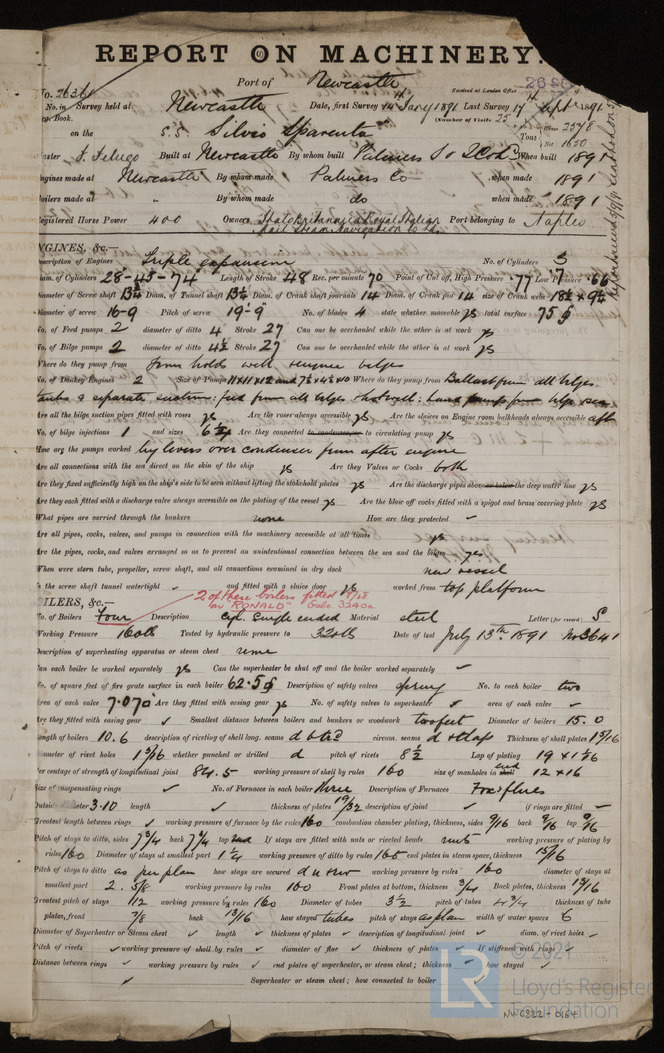 REPORT ON MACHINERY.
Port of Newcastle
Received at London Office 26 SE
No. 26361
No. in Survey held at Newcastle Date, first Survey 14th Jany 1891 Last Survey 17th Sept 1891
Book. (Number of Visits 25
on the S.S. Silvio Spaventa Tons Gross 2578 Net 1650
Master Built at Newcastle By whom built Palmers S & I Co Ld When built 1891
Engines made at Newcastle By whom made Palmers Co when made 1891
Boilers made at " By whom made do when made 1891
Registered Horse Power 400 Owners Italo Britannica Royal Italian Mail Steam Navigation Co Ld. Port belonging to Naples
ENGINES, &c.—
Description of Engines Triple expansion No. of Cylinders 3
Diam. of Cylinders 28-45-74 Length of Stroke 48 Rev. per minute 70 Point of Cut off, High Pressure .77 Low Pressure .66
Diameter of Screw shaft 13¾ Diam. of Tunnel shaft 13¼ Diam. of Crank shaft journals 14 Diam. of Crank pin 14 size of Crank webs 18½ × 9½
Diameter of screw 16-9 Pitch of screw 19-9 No. of blades 4 state whether moveable yes total surface 75
No. of Feed pumps 2 diameter of ditto 4 Stroke 27 Can one be overhauled while the other is at work yes
No. of Bilge pumps 2 diameter of ditto 4½ Stroke 27 Can one be overhauled while the other is at work yes
Where do they pump from From holds well & engine bilges
No. of Donkey Engines 2 Size of Pumps 11×11×12 and 7½×4½×10 Where do they pump from Ballast from all bilges
tanks & separate suction: feed from all bilges & hotwell: hand pumps from bilge & sea
Are all the bilge suction pipes fitted with roses yes Are the roses always accessible yes Are the sluices on Engine room bulkheads always accessible aft
No. of bilge injections 1 and sizes 6½ Are they connected to condenser, or to circulating pump yes
How are the pumps worked by levers over condenser from after engine
Are all connections with the sea direct on the skin of the ship yes Are they Valves or Cocks both
Are they fixed sufficiently high on the ship's side to be seen without lifting the stokehold plates yes Are the discharge pipes above or below the deep water line yes
Are they each fitted with a discharge valve always accessible on the plating of the vessel yes Are the blow off cocks fitted with a spigot and brass covering plate yes
What pipes are carried through the bunkers none How are they protected –
Are all pipes, cocks, valves, and pumps in connection with the machinery accessible at all times yes
Are the pipes, cocks, and valves arranged so as to prevent an unintentional connection between the sea and the bilges yes
When were stern tube, propeller, screw shaft, and all connections examined in dry dock new vessel
Is the screw shaft tunnel watertight – and fitted with a sluice door yes worked from top platform
2 of these boilers fitted
in "RONALD"
BOILERS, &c.—
No. of Boilers Four Description Cyl. Single ended Material steel Letter (for record) S
Working Pressure 160 lb Tested by hydraulic pressure to 320 lb Date of test July 13th 1891 No 3641
Description of superheating apparatus or steam chest none
Can each boiler be worked separately yes Can the superheater be shut off and the boiler worked separately –
No. of square feet of fire grate surface in each boiler 62.5 Description of safety valves Spring No. to each boiler two
Area of each valve 7.07 Are they fitted with easing gear yes No. of safety valves to superheater ✓ area of each valve ✓
Are they fitted with easing gear ✓ Smallest distance between boilers and bunkers or woodwork two feet Diameter of boilers 15.0
Length of boilers 10.6 description of riveting of shell long. seams d b t r d circum. seams d r & lap Thickness of shell plates 1 5/16
Diameter of rivet holes 1 5/16 whether punched or drilled d pitch of rivets 8½ Lap of plating 19 × 1 1/16
Per centage of strength of longitudinal joint 84.5 working pressure of shell by rules 160 size of manholes in end 12 × 16
Size of compensating rings ✓ No. of Furnaces in each boiler three Description of Furnaces Fox's flues
Outside diameter 3.10 length ✓ thickness of plates 19/32 description of joint ✓ if rings are fitted –
Greatest length between rings ✓ working pressure of furnace by the rules 160 combustion chamber plating, thickness, sides 9/16 back 9/16 top 9/16
Pitch of stays to ditto, sides 7¾ back 7¾ top If stays are fitted with nuts or riveted heads nuts working pressure of plating by
rules 160 Diameter of stays at smallest part 1¼ working pressure of ditto by rules 165 end plates in steam space, thickness 15/16
Pitch of stays to ditto as per plan how stays are secured d n & w working pressure by rules 160 diameter of stays at
smallest part 2.5/8 working pressure by rules 160 Front plates at bottom, thickness ¾ Back plates, thickness
Greatest pitch of stays 112 working pressure by rules 160 Diameter of tubes 3½ pitch of tubes 4¾ thickness of tube
plates, front 7/8 back 13/16 how stayed tubes pitch of stays as plan width of water spaces 6
Diameter of Superheater or Steam chest ✓ length ✓ thickness of plates ✓ description of longitudinal joint ✓ diam. of rivet holes –
Pitch of rivets ✓ working pressure of shell by rules ✓ diameter of flue ✓ thickness of plates ✓ If stiffened with rings ✓
Distance between rings ✓ working pressure by rules ✓ end plates of superheater, or steam chest; thickness ✓ how stayed ✓
✓ Superheater or steam chest; how connected to boiler
© 2021
LR
Lloyd's Register
Foundation
NWC822-0164